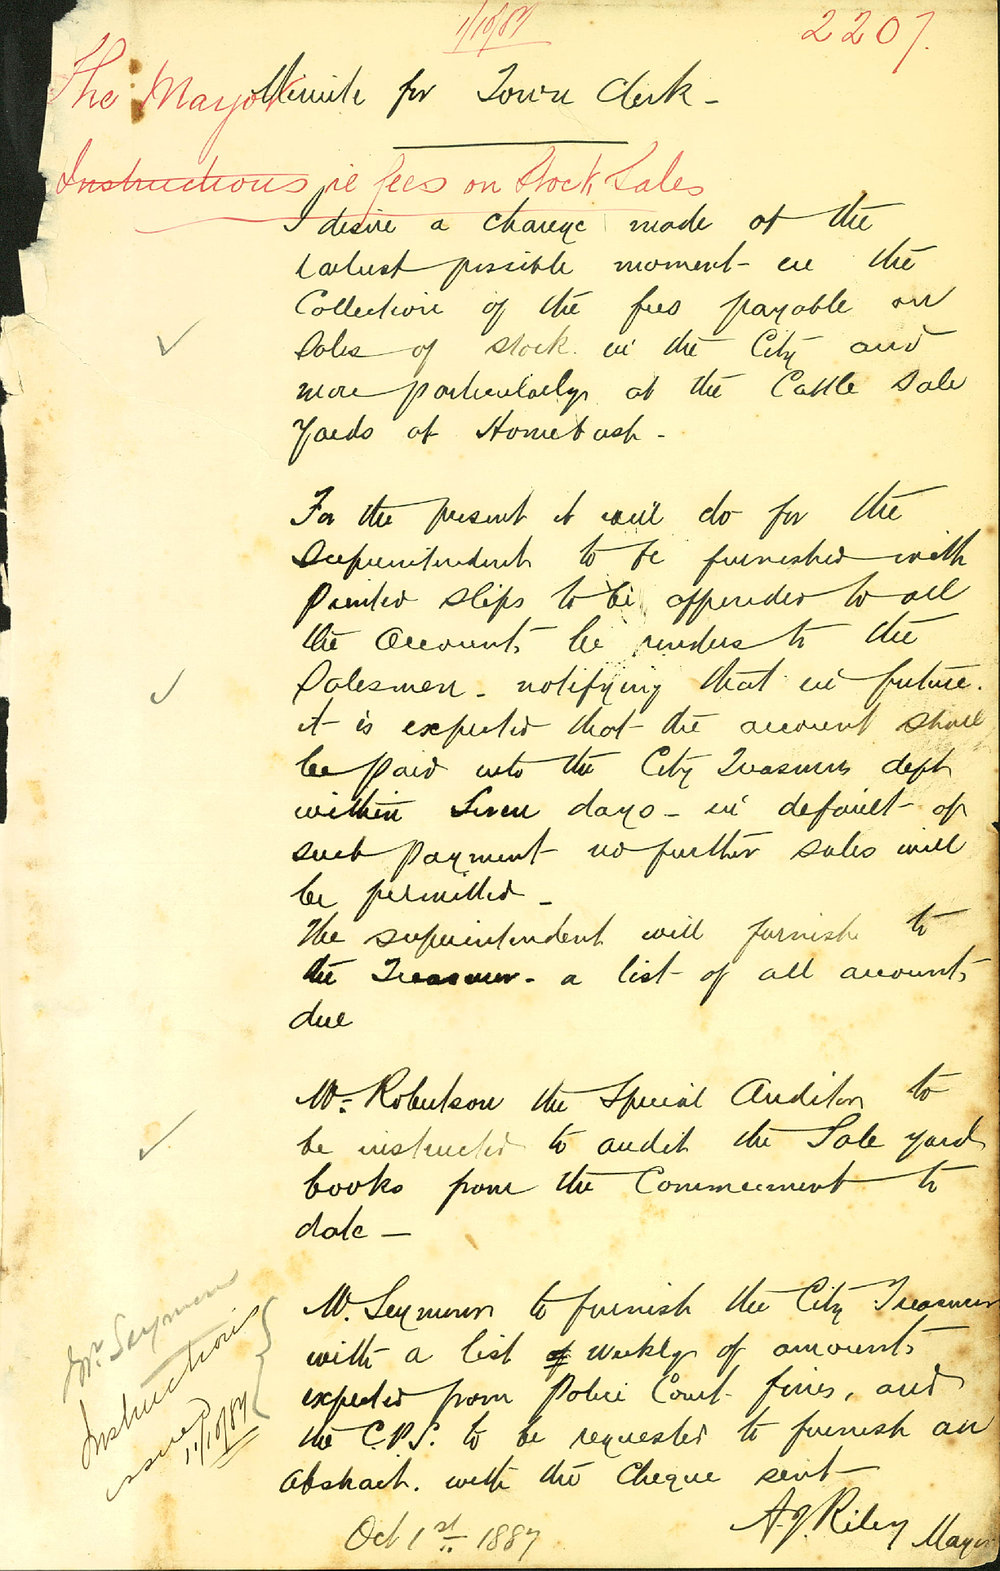 1/10/87
2207.
The Mayor
Minute for Town Clerk -
Instructions re fees on Stock Sales
I desire a change made at the
earliest possible moment - in the
Collection of the fees payable on
Sales of stock in the City and
more particularly at the Cattle Sale
Yards at Homebush -
For the present it will do for the
Superintendent to be furnished with
printed slips to be appended to all
the Accounts he renders to the
Salesmen - notifying that in future.
it is expected that the account shall
be paid into the City Treasurers dept
within Seven days - in default of
such payment no further sales will
be permitted -
The superintendent will furnish to
the Treasurer - a list of all accounts
due
Mr Robertson the Special Auditor to
be instructed to audit the Sale yard
books from the Commencement to
date -
Mr Seymour to furnish the City Treasurer
with a list of weekly of amounts
expected from Police Court fines, and
the C.P.S. to be requested to furnish an
abstract. with the cheque sent
A.J. Riley Mayor
Oct 1st 1887
Mr Seymour
Instructions
issued
11/10/87